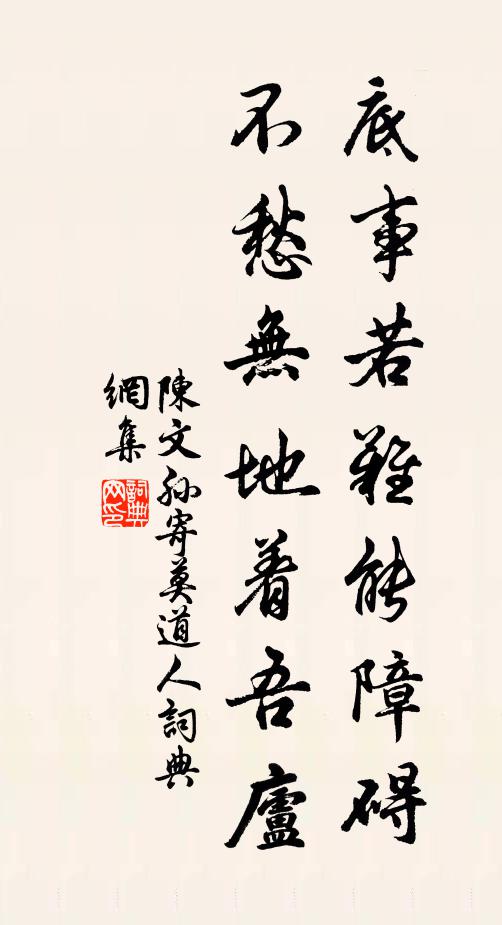 底事若難能障碍
不愁無地着吾廬
陳文孫寄莫道人詞典
網集
詞典網印